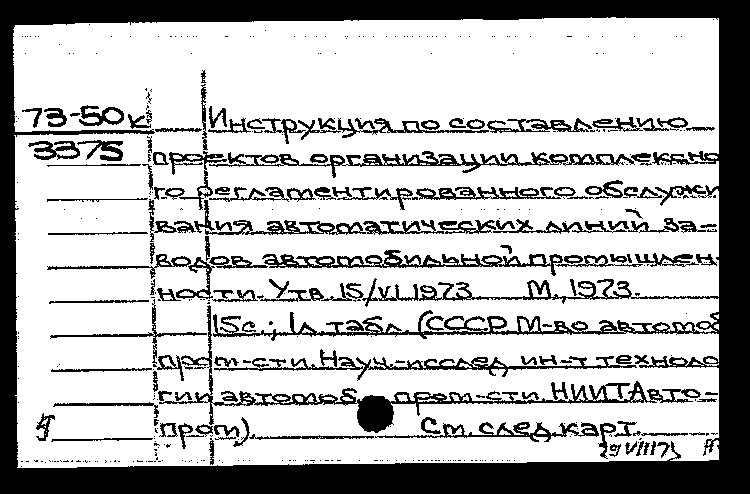 73-50к Инструкция по составлению
3375 проектов организации комплексно
го регламентированного обслужи
вания автоматических линий за-
водов автомобильной промышлен-
ности. Утв. 15/VI 1973. М., 1973.
15с.; 1л. табл. (СССР М-во автомоб
пром-сти. Науч.-исслед. ин-т техноло
гии автомоб. пром-сти. НИИТАвто-
пром).
См. след. карт.
29 VIII 73